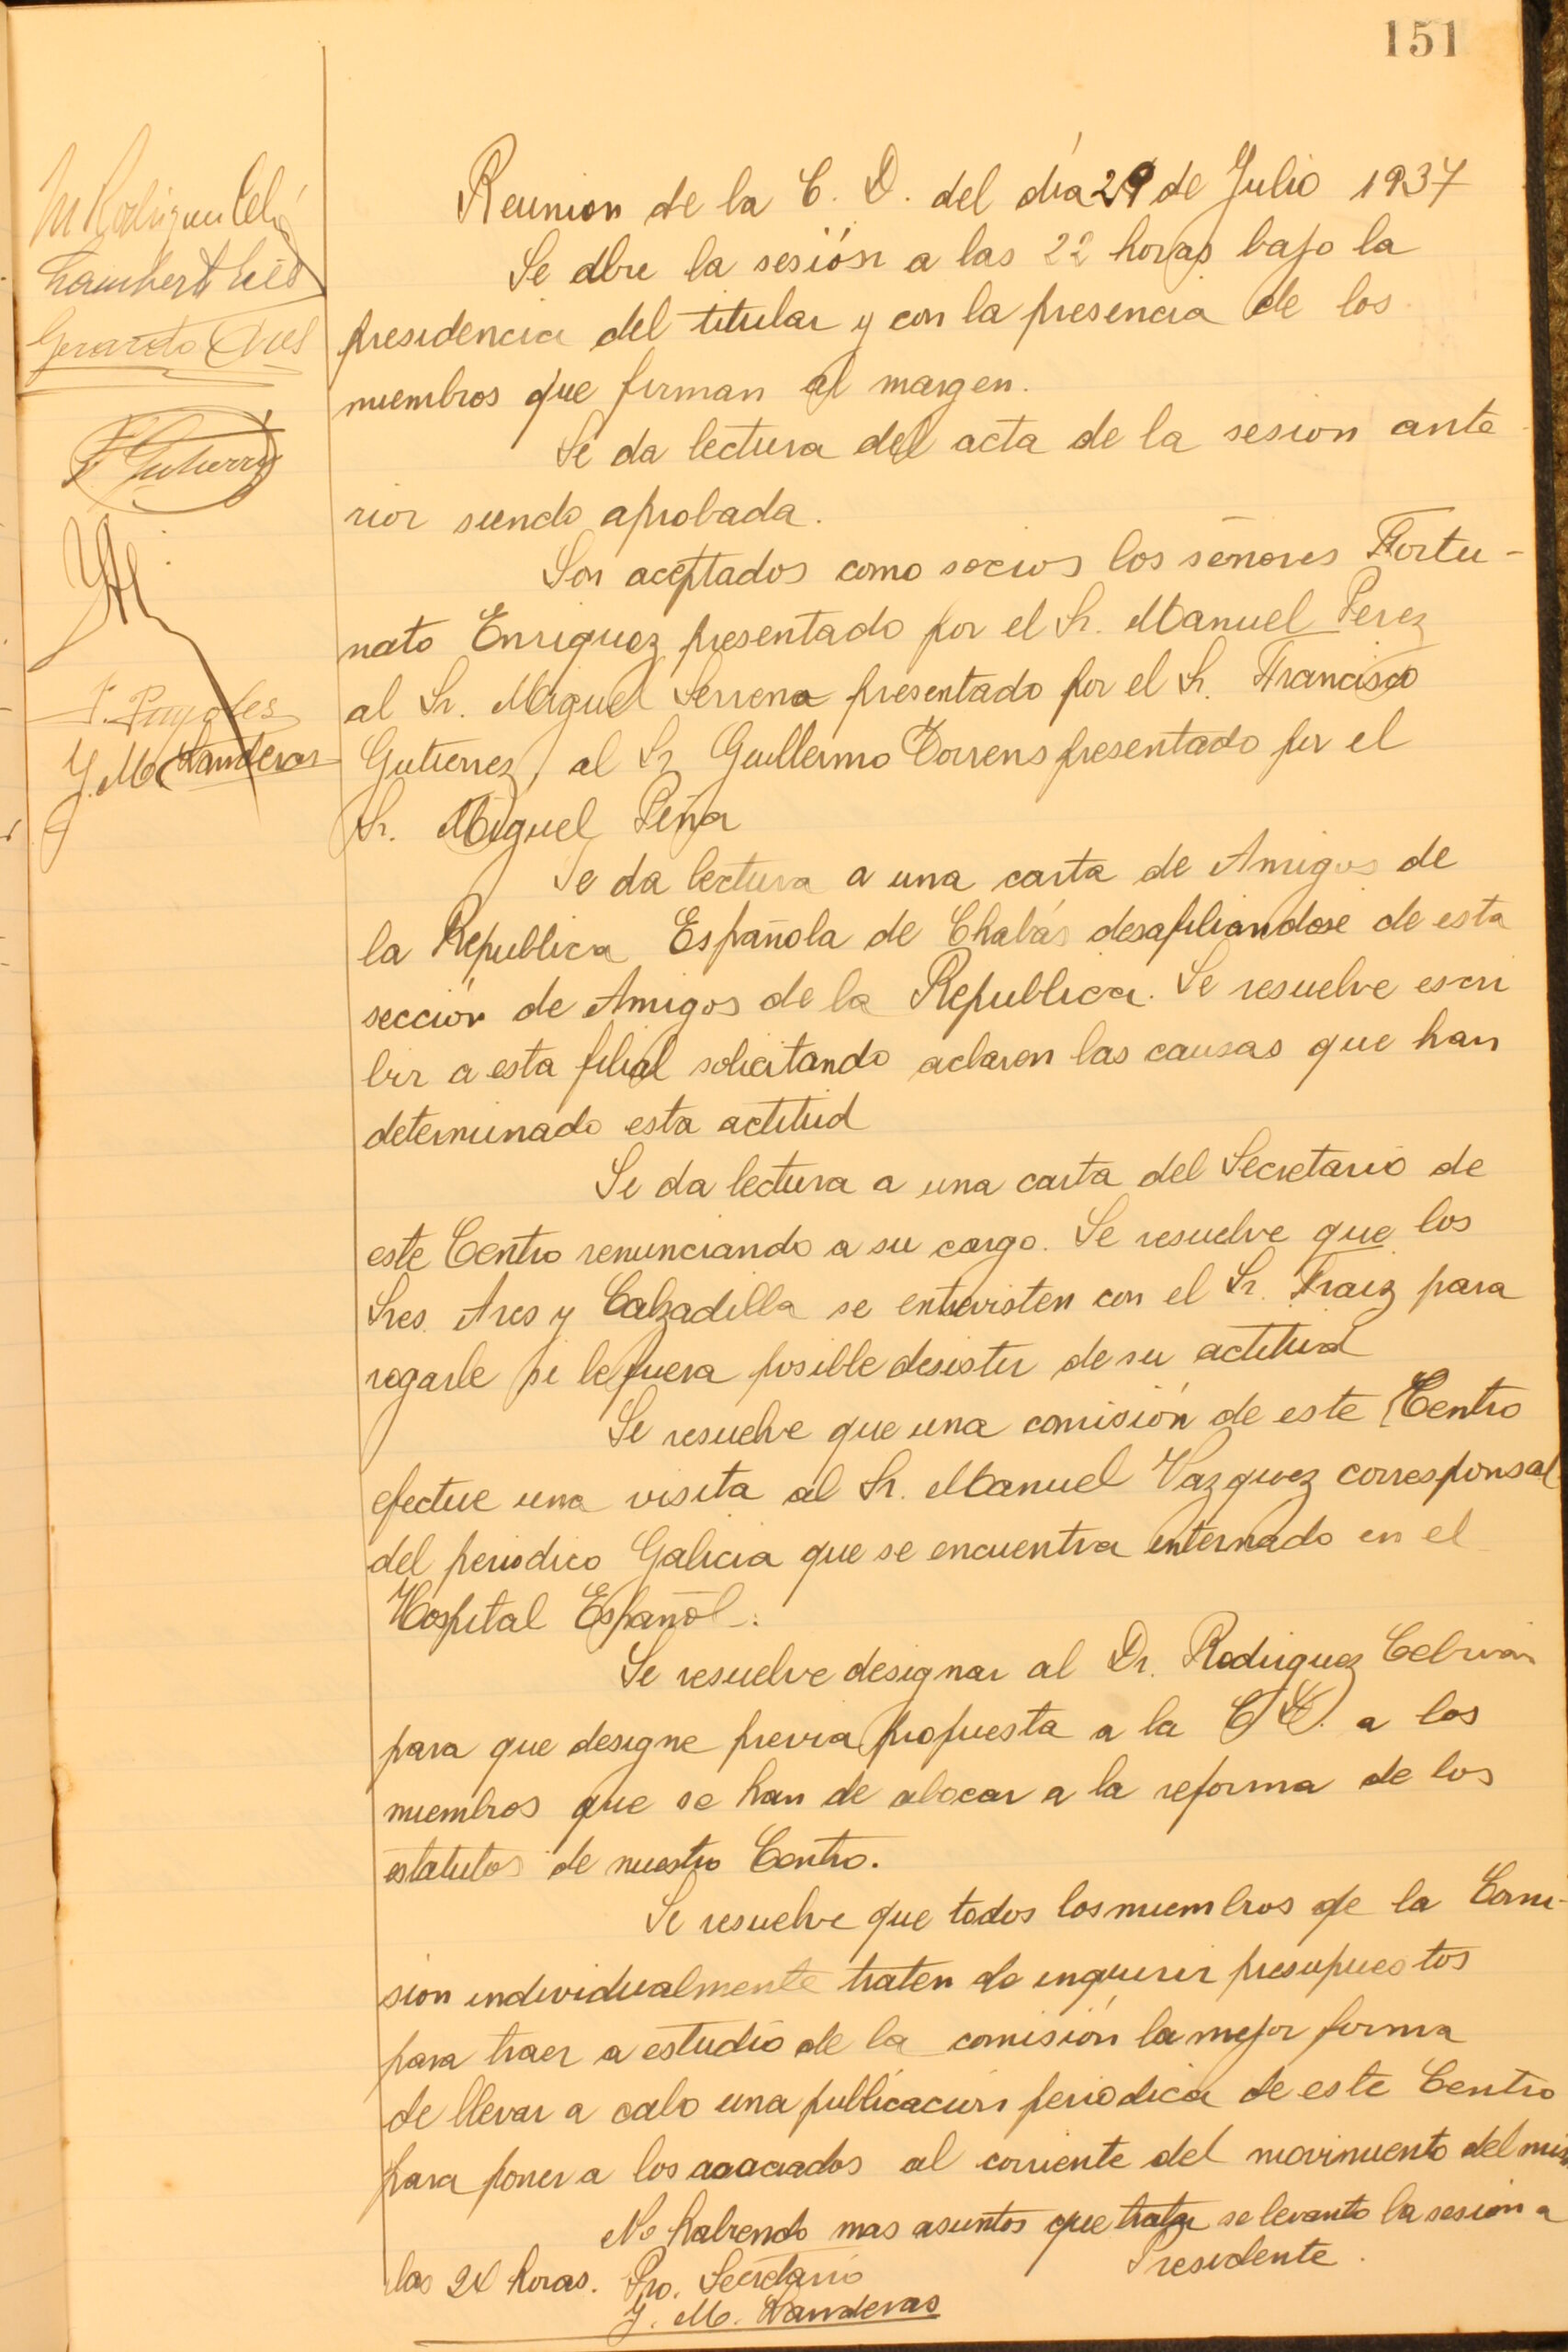 151
Reunion de la C. D. del día 29 de Julio 1937
Se abre la sesión a las 22 horas bajo la
presidencia del titular y con la presencia de los
miembros que firman al margen.
Se da lectura del acta de la sesion ante
rior siendo aprobada.
Son aceptados como socios los señores Fortu-
nato Enriquez presentado por el Sr. Manuel Perez
al Sr. Miguel Serrena presentado por el Sr. Francisco
Gutierrez, al Sr Guillermo Torrens presentado por el
Sr. Miguel Peña
Se da lectura a una carta de Amigos de
la Republica Española de Chabás desafiliandose de esta
sección de Amigos de la Republica. Se resuelve escri
bir a esta filial solicitando aclaren las causas que han
determinado esta actitud
Se da lectura a una carta del Secretario de
este Centro renunciando a su cargo. Se resuelve que los
Sres. Ares y Calzadilla se entrevisten con el Sr. Fraiz para
rogarle si le fuera posible desistir de su actitud
Se resuelve que una comisión de este Centro
efectue una visita al Sr. Manuel Vazquez corresponsal
del periodico Galicia que se encuentra internado en el
Hospital Español.
Se resuelve designar al Dr. Rodriguez Cebrián
para que designe previa propuesta a la C D. a los
miembros que se han de abocar a la reforma de los
estatutos de nuestro Centro.
Se resuelve que todos los miembros de la Comi-
sion individualmente traten de inquirir presupuestos
para traer a estudio de la comisión la mejor forma
de llevar a cabo una publicación periodica de este Centro
para poner a los asociados al corriente del movimiento del
No habiendo mas asuntos que tratar se levanto la sesion a
las 24 horas. Pro. Secretario Presidente.
J. M. Landeras
Gerardo Ares
F. Gutierrez
J. Puyoles
J. M. Landeras